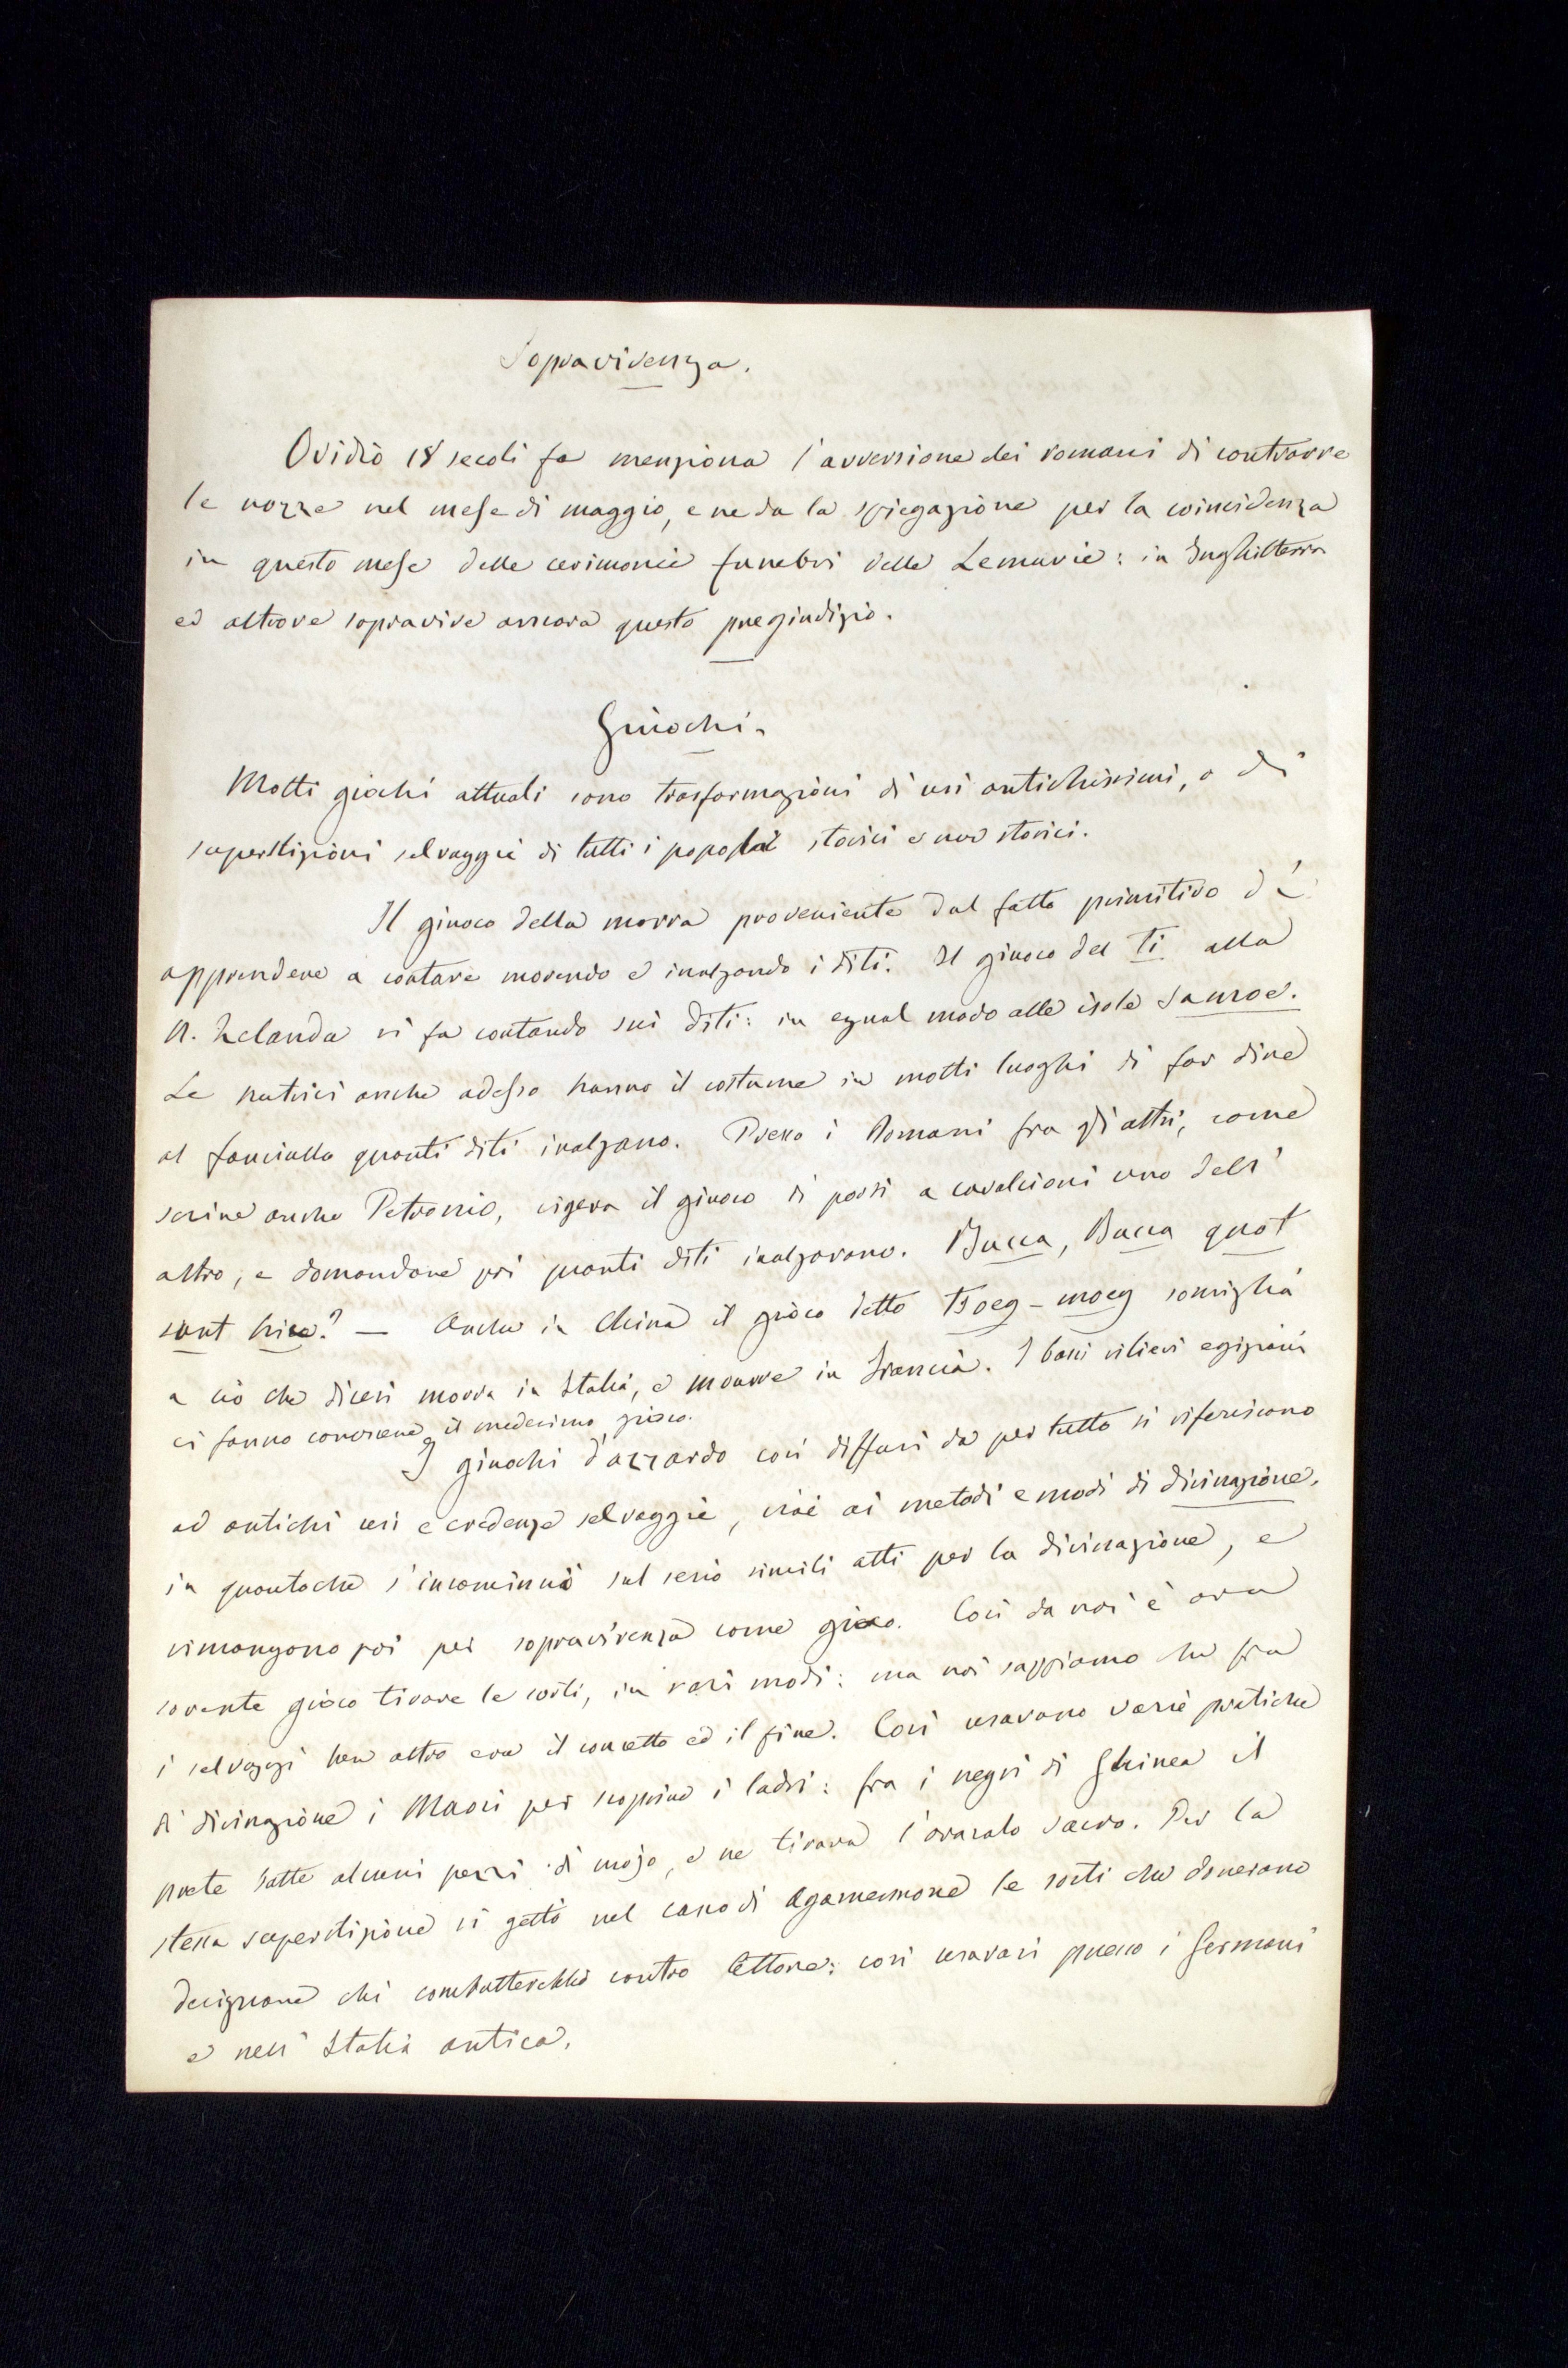 Sopravivenza.
Ovidio 18 secoli fa menziona l'avversione dei romani di contrarre
le nozze nel mese di maggio, e ne da la spiegazione per la coincidenza
in questo mese delle cerimonie funebri delle Lemurie: in Inghilterra
ed altrove sopravive ancora questo pregiudizio.
Giuochi.
Molti giochi attuali sono trasformazioni di usi antichissimi, o di
superstizioni selvaggie di tutti i popoli storici e non storici.
Il giuoco della morra proveniente dal fatto primitivo di
apprendere a contare movendo e inalzando i diti. Il giuoco del Ti alla
N. Zelanda si fa contando sui diti: in egual modo alle isole Samoe.
Le nutrici anche adesso hanno il costume in molti luoghi di far dire
al fanciullo quanti diti inalzano. Presso i Romani fra gli altri, come
scrive anche Petronio, vigeva il giuoco di porsi a cavalcioni uno dell'
altro, e domandare poi quanti diti inalzavano. Bucca, Bucca quot
sunt hice? — Anche in China il gioco detto Tsoey-moey somiglia
a ciò che dicesi morra in Italia, e mourre in Francia. I bassi rilievi egiziani
ci fanno conoscere il medesimo gioco.
I giuochi d'azzardo così diffusi da per tutto si riferiscono
ad antichi usi e credenze selvaggie, cioè ai metodi e modi di divinazione,
in quantoche s'incominciò sul serio simili atti per la divinazione, e
rimangono poi per sopravivenza come gioco. Così da noi è ora
sovente gioco tirare le sorti, in vari modi: ma noi sappiamo che fra
i selvaggi ben altro era il concetto ed il fine. Così usavano varie pratiche
di divinazione i Maori per scoprire i ladri: fra i negri di Ghinea il
prete batte alcuni pezzi di mojo, e ne tirava l'oracolo sacro. Per la
stessa superstizione si gettò nel casco di Agamennone le sorti che dovevano
designare chi combatterebbe contro Ettore: così usavasi presso i Germani
e nell'Italia antica.